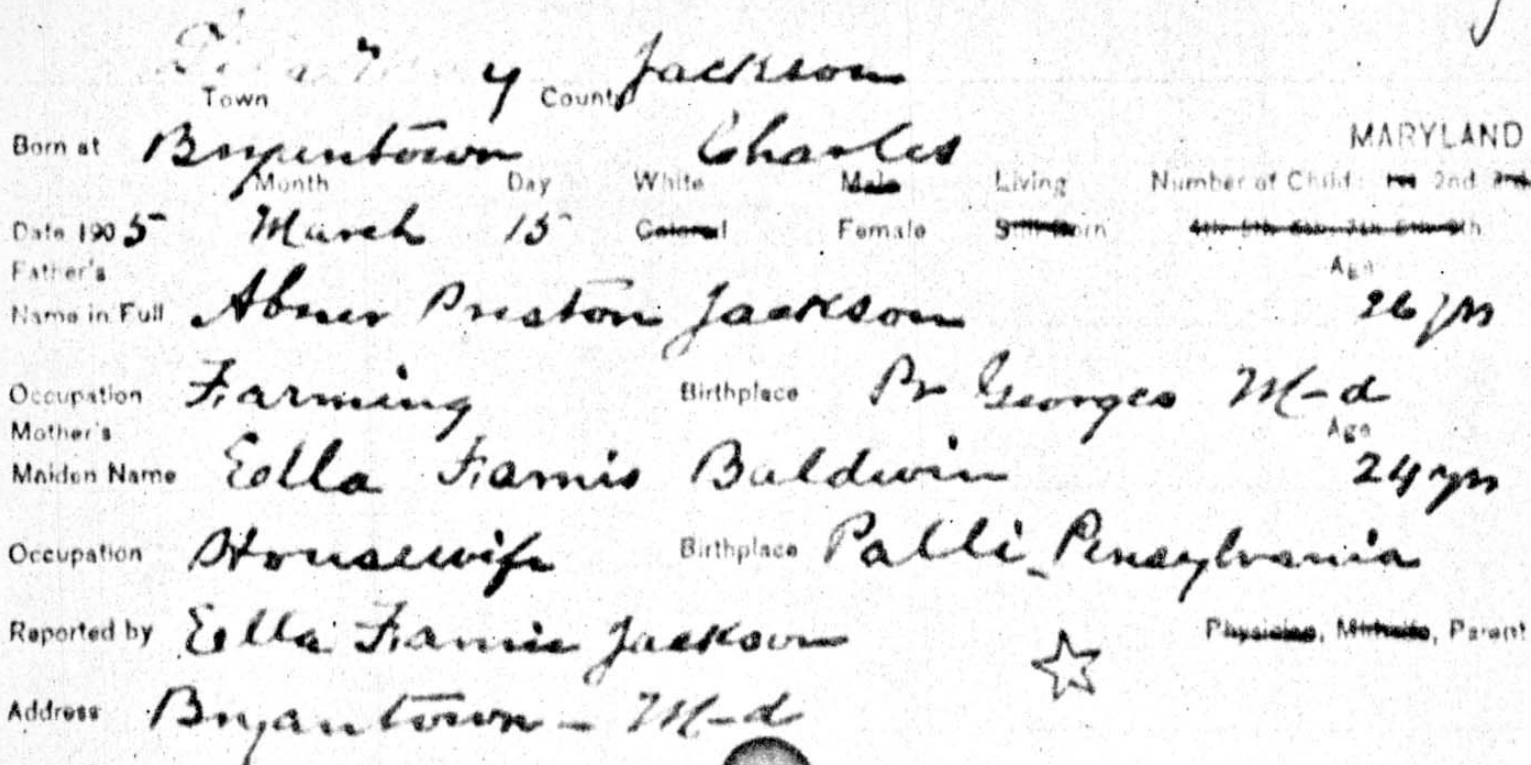 Jackson
Town County
Born at Bryentown Charles MARYLAND
Month Day White Male Living Number of Child: 1st 2nd 3rd
Date 1905 March 15 Colored Female Still Born 4th 5th 6th 7th 8th 9th
Father's Age
Name in Full Abner Preston Jackson 26 yrs
Occupation Farming Birthplace Pr Georges M-d
Mother's Age
Maiden Name Eolla Fannie Baldwin 24 yrs
Occupation Housewife Birthplace Palli Pensylvania
Reported by Eolla Fannie Jackson Physician, Midwife, Parent
Address Bryantown - M-d